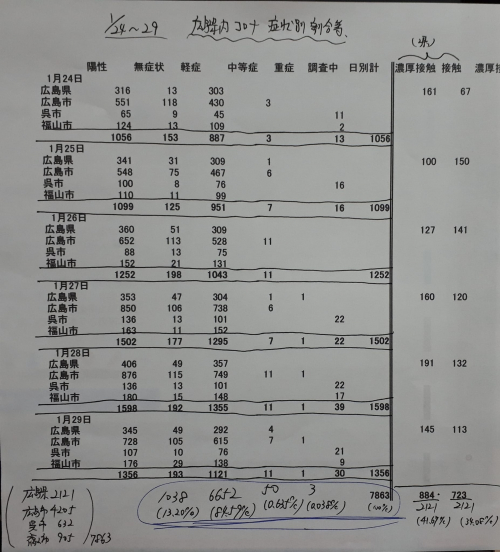 1/24～29 広島県内コロナ 症状別割合等
(県)
陽性 無症状 軽症 中等症 重症 調査中 日別計 濃厚接触 接触 濃厚接
1月24日
広島県 316 13 303 161 67
広島市 551 118 430 3
呉市 65 9 45 11
福山市 124 13 109 2
1056 153 887 3 13 1056
1月25日
広島県 341 31 309 1 100 150
広島市 548 75 467 6
呉市 100 8 76 16
福山市 110 11 99
1099 125 951 7 16 1099
1月26日
広島県 360 51 309 127 141
広島市 652 113 528 11
呉市 88 13 75
福山市 152 21 131
1252 198 1043 11 1252
1月27日
広島県 353 47 304 1 1 160 120
広島市 850 106 738 6
呉市 136 13 101 22
福山市 163 11 152
1502 177 1295 7 1 22 1502
1月28日
広島県 406 49 357 191 132
広島市 876 115 749 11 1
呉市 136 13 101 22
福山市 180 15 148 17
1598 192 1355 11 1 39 1598
1月29日
広島県 345 49 292 4 145 113
広島市 728 105 615 7 1
呉市 107 10 76 21
福山市 176 29 138 9
1356 193 1121 11 1 30 1356
広島県 2121
広島市 4205
呉市 632
福山市 905 7863
1038 6652 50 3 7863 884 723
2121 2121
(13.20%) (84.59%) (0.635%) (0.038%) (100%) (41.67%) (34.08%)